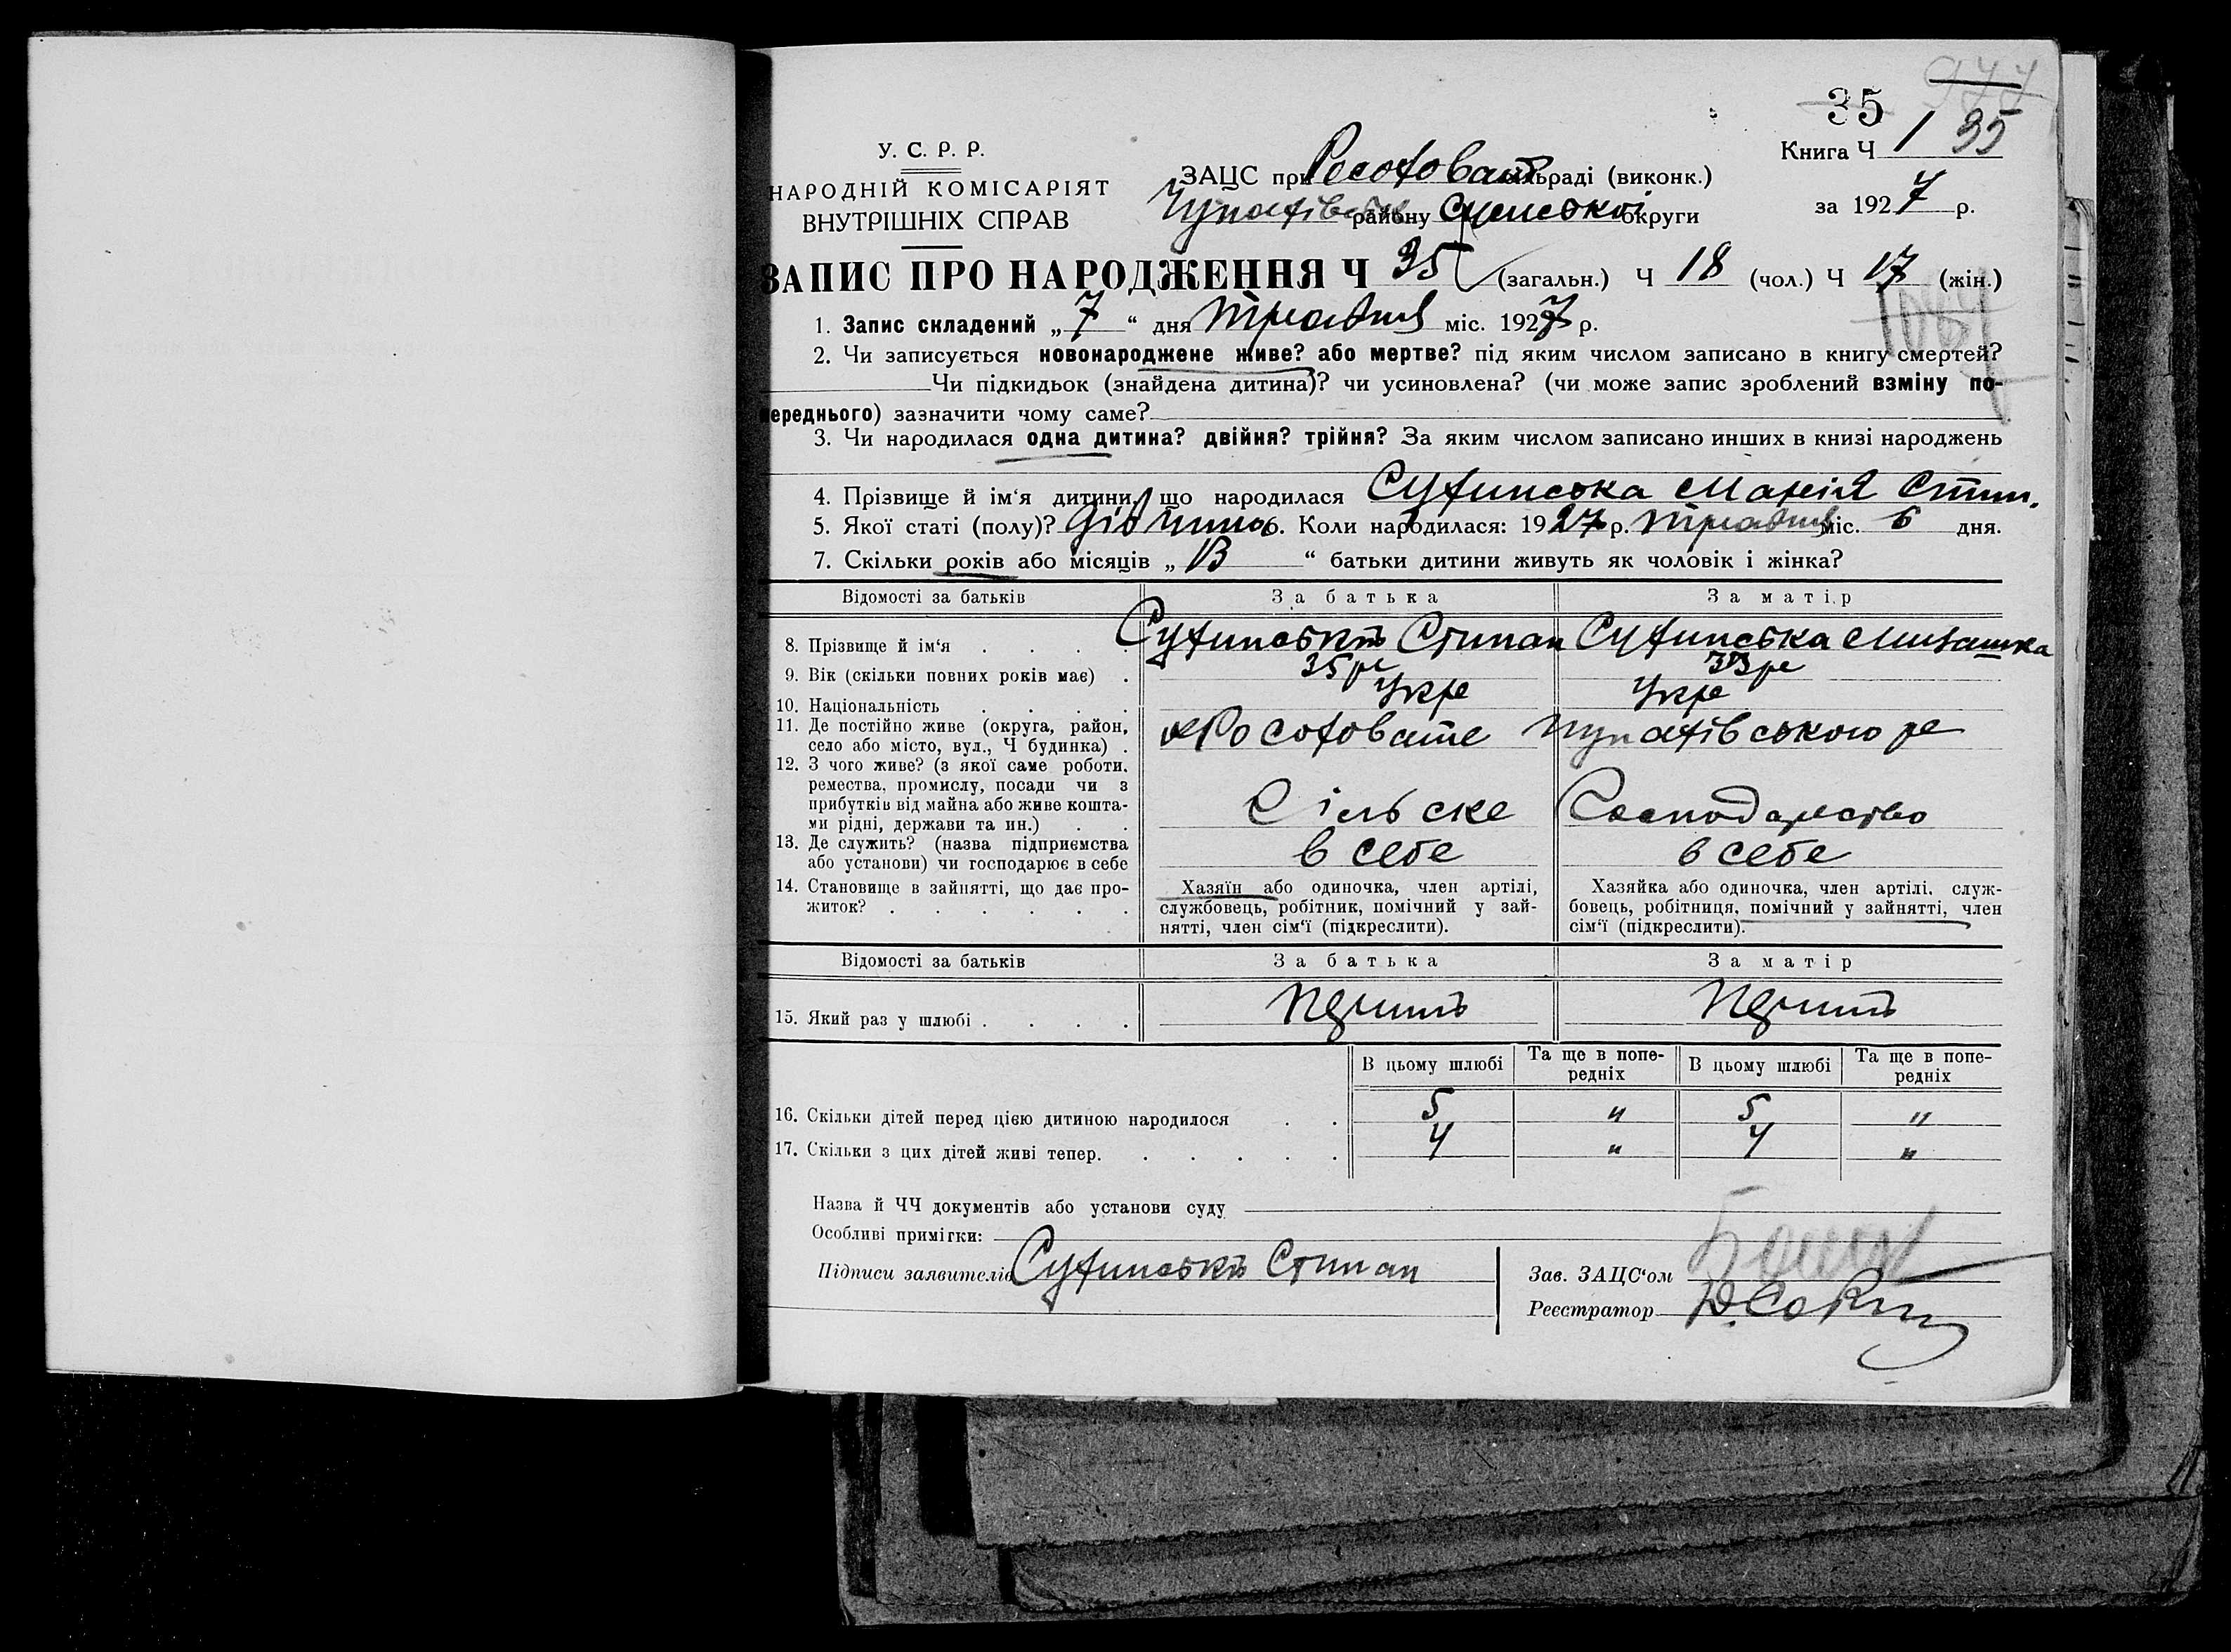 977
35
Книга Ч 1 35
У. С. Р. Р.
НАРОДНІЙ КОМІСАРІЯТ
ВНУТРІШНІХ СПРАВ
ЗАЦС при Росоховат сільраді (виконк.)
району Сумської округи
за 1927 р.
ЗАПИС ПРО НАРОДЖЕННЯ Ч 35 (загальн.) Ч 18 (чол.) Ч 17 (жін.)
1. Запис складений „ 7 “ дня травня міс. 1927 р.
2. Чи записується новонароджене живе? або мертве? під яким числом записано в книгу смертей?
Чи підкидьок (знайдена дитина)? чи усиновлена? (чи може запис зроблений взміну по-
переднього) зазначити чому саме?
3. Чи народилася одна дитина? двійня? трійня? За яким числом записано инших в книзі народжень
4. Прізвище й ім‘я дитини, що народилася Сухинська Марія Стип.
5. Якої статі (полу)? дівчина 6. Коли народилася: 1927 р. травня міс. 6 дня.
7. Скільки років або місяців „ 13 “ батьки дитини живуть як чоловік і жінка?
Відомості за батьків За батька За матір
8. Прізвище й ім‘я . . . . Сухинський Стипан Сухинська
9. Вік (скільки повних років має) . 35 р 33 р
10. Національність . . . . Укр Укр
11. Де постійно живе (округа, район,
село або місто, вул., Ч будинка) . Росоховате
12. З чого живе? (з якої саме роботи,
ремества, промислу, посади чи з
прибутків від майна або живе кошта-
ми рідні, держави та ин.) . . Сільске Господарство
13. Де служить? (назва підприємства
або установи) чи господарює в себе в себе в себе
14. Становище в зайнятті, що дає про-
житок? . . . . . .
Хазяїн або одиночка, член артілі,
службовець, робітник, помічний у зай-
нятті, член сім‘ї (підкреслити).
Хазяйка або одиночка, член артілі, служ-
бовець, робітниця, помічний у зайнятті, член
сім‘ї (підкреслити).
Відомості за батьків За батька За матір
15. Який раз у шлюбі . . . .
В цьому шлюбі Та ще в попе-
редніх В цьому шлюбі Та ще в попе-
редніх
16. Скільки дітей перед цією дитиною народилося . . 5 " 5 "
17. Скільки з цих дітей живі тепер. . . . . . 4 " 4 "
Назва й ЧЧ документів або установи суду
Особливі примігки:
Підписи заявителів Сухинський Стипан
Зав. ЗАЦС‘ом
Реєстратор